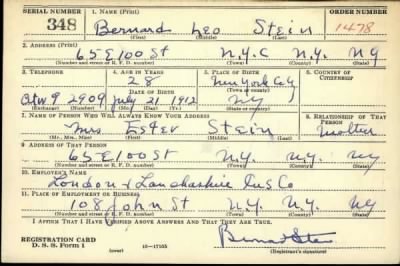 SERIAL NUMBER 1. NAME (Print) ORDER NUMBER
348 Bernard Leo Stein 1478
(First) (Middle) (Last)
2. ADDRESS (Print)
65 E 100 St N.Y.C N.Y. NY
(Number and street or R. F. D. number) (Town) (County) (State)
3. TELEPHONE 4. AGE IN YEARS 5. PLACE OF BIRTH 6. COUNTRY OF CITIZENSHIP
28 New York City
DATE OF BIRTH (Town or county)
9 2909 July 21 1912 NY
(Exchange) (Number) (Mo.) (Day) (Yr.) (State or country)
7. NAME OF PERSON WHO WILL ALWAYS KNOW YOUR ADDRESS 8. RELATIONSHIP OF THAT PERSON
Mrs. Ester Stein Mother
(Mr., Mrs., Miss) (First) (Middle) (Last)
9. ADDRESS OF THAT PERSON
65 E 100 St N.Y. N.Y. NY
(Number and street or R. F. D. number) (Town) (County) (State)
10. EMPLOYER'S NAME
London & Lanchashire Ins Co
11. PLACE OF EMPLOYMENT OR BUSINESS
108 John St N.Y. N.Y. NY
(Number and street or R. F. D. number) (Town) (County) (State)
I AFFIRM THAT I HAVE VERIFIED ABOVE ANSWERS AND THAT THEY ARE TRUE.
REGISTRATION CARD
D. S. S. Form 1 (over) 16—17105 (Registrant's signature)